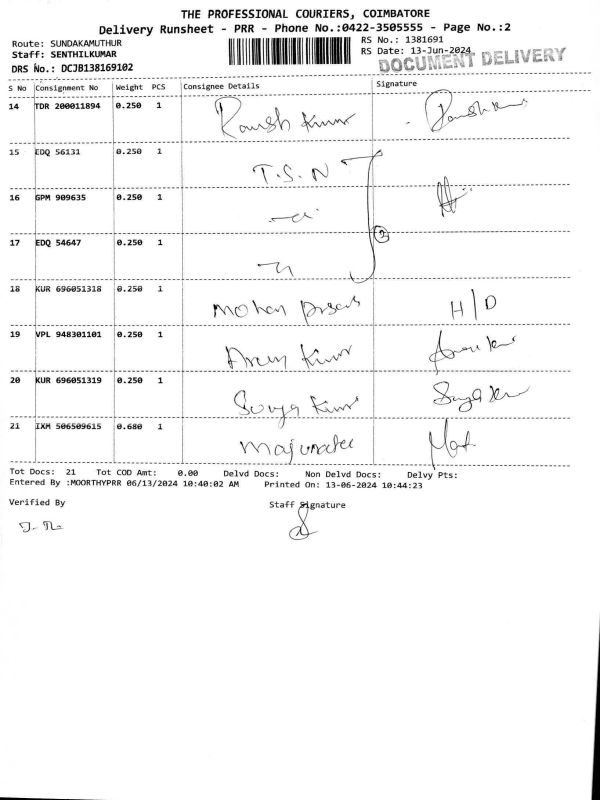 THE PROFESSIONAL COURIERS, COIMBATORE
Delivery Runsheet - PRR - Phone No.:0422-3505555 - Page No.:2
Route: SUNDAKAMUTHUR RS No.: 1381691
Staff: SENTHILKUMAR RS Date: 13-Jun-2024
DOCUMENT DELIVERY
DRS No.: DCJB138169102
S No Consignment No Weight PCS Consignee Details Signature
14 TDR 200011894 0.250 1 Kumar
15 EDQ 56131 0.250 1 T.S.N
16 GPM 909635 0.250 1
3
17 EDQ 54647 0.250 1
18 KUR 696051318 0.250 1 Mohan H/D
19 VPL 948301101 0.250 1 Kumar
20 KUR 696051319 0.250 1 Surya Kumar
21 IXM 506509615 0.680 1
Tot Docs: 21 Tot COD Amt: 0.00 Delvd Docs: Non Delvd Docs: Delvy Pts:
Entered By :MOORTHYPRR 06/13/2024 10:40:02 AM Printed On: 13-06-2024 10:44:23
Verified By Staff Signature